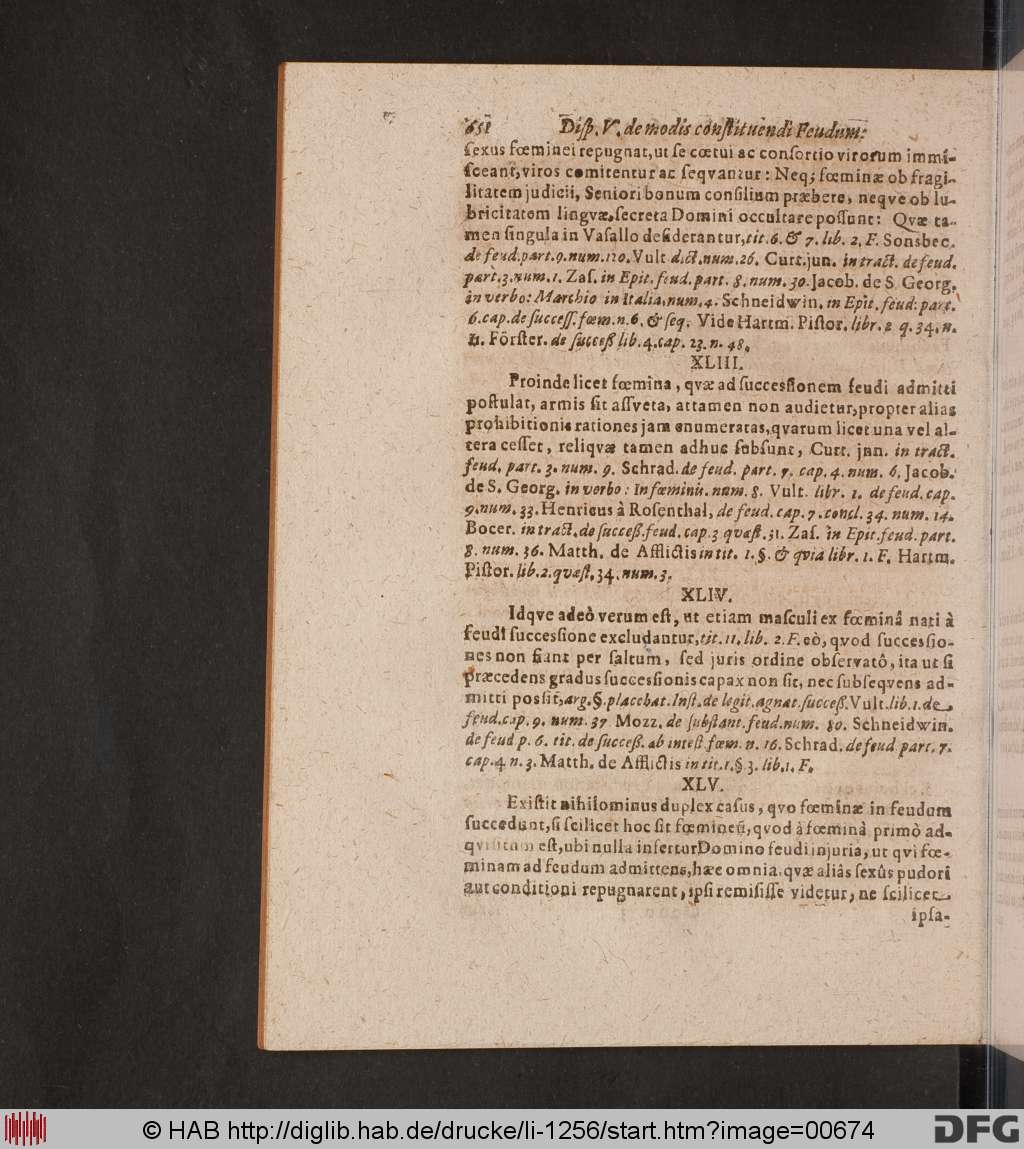 651 Diſp. V. de modis conſtituendi Feudum:
ſexus fœminei repugnat, ut ſe cœtui ac conſortio virorum immi-
ſceant, viros comitentur ac ſeqvantur: Neq; fœminæ ob fragi-
litatem judicii, Seniori bonum conſilium præbere, neqve ob lu-
bricitatem lingvæ, ſecreta Domini occultare poſſunt: Qvæ ta-
men ſingula in Vaſallo deſiderantur, tit. 6. & 7. lib. 2. F. Sonsbec.
de feud. part. 9. num. 120. Vult. d. ict. num. 26. Curt. jun. in tract. de feud.
part. 3. num. 1. Zaſ. in Epit. feud. part. 8. num. 30. Jacob. de S. Georg.
in verbo: Marchio in Italia, num. 4. Schneidwin. in Epit. feud: part.
6. cap. de ſucceſſ. fœm. n. 6. & ſeq. Vide Hartm. Piſtor. libr. 2 q. 34. n.
11. Förſter. de ſucceß lib. 4. cap. 23. n. 48.
XLIII.
Proinde licet fœmina, qvæ ad ſucceſſionem feudi admitti
poſtulat, armis ſit aſſveta, attamen non audietur, propter alias
prohibitionis rationes jam enumeratas, qvarum licet una vel al-
tera ceſſet, reliqvæ tamen adhuc ſubſunt, Curt. jun. in tract.
feud. part. 3. num. 9. Schrad. de feud. part. 7. cap. 4. num. 6. Jacob.
de S. Georg. in verbo: In fœminis. num. 8. Vult. libr. 1. de feud. cap.
9. num. 33. Henricus à Roſenthal, de feud. cap. 7. concl. 34. num. 14.
Bocer. in tract. de ſucceß. feud. cap. 3 quæſt. 31. Zaſ. in Epit. feud. part.
8. num. 36. Matth. de Afflictis in tit. 1. §. & quia libr. 1. F. Hartm.
Piſtor. lib. 2. quæſt. 34. num. 3.
XLIV.
Idqve adeò verum eſt, ut etiam maſculi ex fœminâ nati à
feudi ſucceſſione excludantur, tit. 11. lib. 2. F. eò, qvod ſucceſſio-
nes non fiant per ſaltum, ſed juris ordine obſervatô, ita ut ſi
præcedens gradus ſucceſſionis capax non ſit, nec ſubſeqvens ad-
mitti poſſit, arg. §. placebat. Inſt. de legit. agnat. ſucceß. Vult. lib. 1. de
feud. cap. 9. num. 37 Mozz. de ſubſtant. feud. num. 80. Schneidwin.
de feud p. 6. tit. de ſucceß. ab inteſt fœm. n. 16. Schrad. de feud part. 7.
cap. 4 n. 3. Matth. de Afflictis in tit. 1. § 3. lib. 1. F.
XLV.
Exiſtit nihilominus duplex caſus, qvo fœminæ in feudum
ſuccedunt, ſi ſcilicet hoc ſit fœmineũ, qvod à fœminâ primò ad-
qviſitum eſt, ubi nulla inferturDomino feudi injuria, ut qvi fœ-
minam ad feudum admittens, hæc omnia, qvæ aliâs ſexûs pudori
aut conditioni repugnarent, ipſi remiſiſſe videtur, ne ſcilicet
ipſa-
© HAB http://diglib.hab.de/drucke/li-1256/start.htm?image=00674
DFG